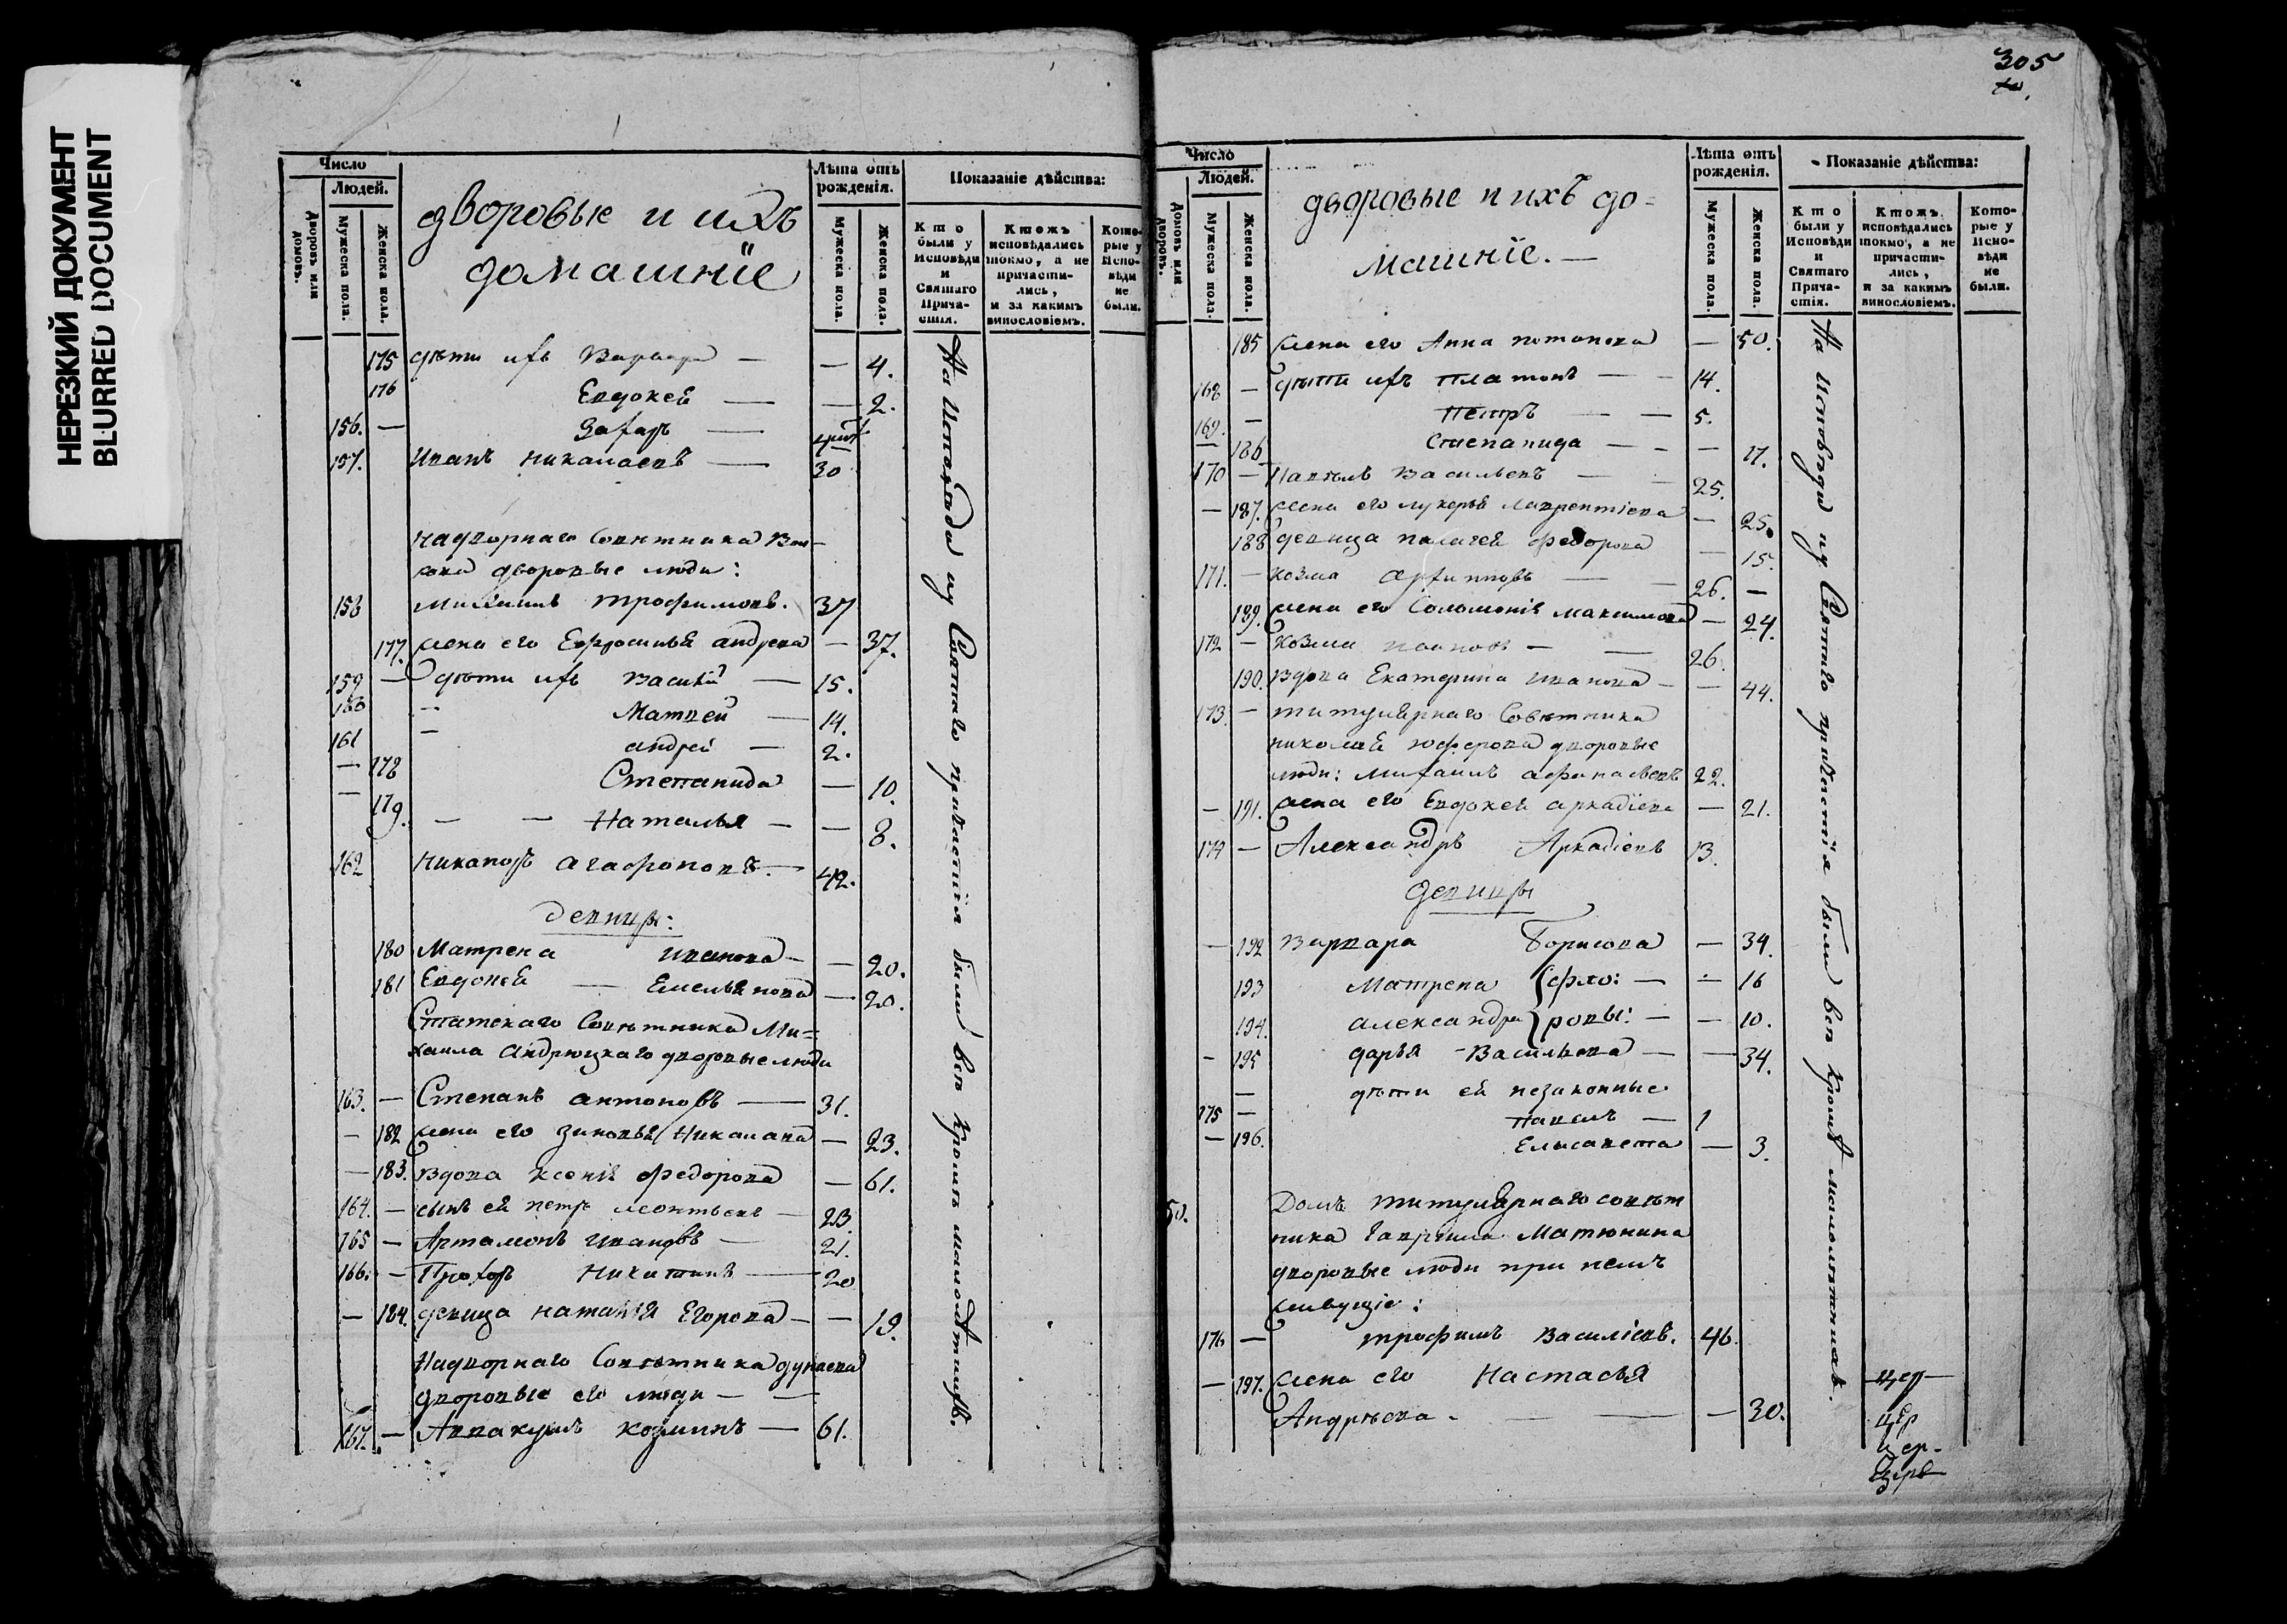 НЕРЕЗКИЙ ДОКУМЕНТ
BLURRED DOCUMENT
Число
Людей.
Дворовъ или домовъ.
Мужеска пола.
Женска пола.
дворовые и ихъ
домашнїе
Лѣта отъ рожденія.
Мужеска пола.
Женска пола.
Показаніе дѣйства:
Кто были у Исповѣди и Святаго Причастія.
Ктожъ исповѣдались токмо, а не причастились, и за какимъ винословіемъ.
Которые у Исповѣди не были.
175 дѣти ихъ Варвара — — 4.
176 Евдокея — — 2.
156. — Захаръ —
157. Иванъ Николаевъ — 30
Надворнаго Совѣтника
дворовые люди:
158 Михаилъ Трофимовъ. 37
177. жена его Ефросинья Андрева — 37.
159 — дѣти ихъ Василій — 15.
160 — Матвей — 14.
161 — Андрей — 2.
— 178 Степанида — 10.
— 179. — — Наталья — — 8.
162 Никаноръ Агафоновъ. — 42.
девицы:
180 Матрена Иванова — — 20.
181 Евдокея — Емельянова — 20.
Статскаго Совѣтника Ми=
хаила Андрюцкаго дворовые люди
163. — Степанъ Антоновъ — 31.
— 182 жена его Зиновья Николаева — 23.
— 183. Вдова Ксенія Федорова — 61.
164. — сынъ ея Петръ Леонтьевъ — 23
165 — Артамонъ Ивановъ — 21.
166. — Прохоръ Никитинъ — 20
— 184. девица Наталья Егорова — — 19.
Надворнаго Совѣтника Дунаева
дворовые его люди — —
167. — Аввакумъ Козминъ — 61.
На Исповѣди и у Святаго причастія были всѣ кромѣ малолѣтныхъ.
305
Число
Людей.
Домовъ или дворовъ.
Мужеска пола.
Женска пола.
дворовые и ихъ до=
машнїе. —
Лѣта отъ рожденія.
Мужеска пола.
Женска пола.
Показаніе дѣйства:
Кто были у Исповѣди и Святаго Причастія.
Ктожъ исповѣдались токмо, а не причастились, и за какимъ винословіемъ.
Которые у Исповѣди не были.
185 жена его Анна Потапова — 50.
168 — дѣти ихъ Платонъ — — 14.
169. — Петръ — — 5.
— 186 Степанида — — — 17.
170 — Павелъ Васильевъ — — 25.
— 187. жена его Лукерья Лаврентіева — 25.
188 девица Пелагея Федорова — 15.
171. — Козма Архиповъ — — 26. —
189. жена его Соломонія Максимова — 24.
172 — Козма — — 26.
190. Вдова Екатерина Иванова — — 44.
173. — Титулярнаго Совѣтника
Николая Юферова дворовые
люди: Михаилъ Афанасьевъ 22.
— 191. жена его Евдокея Аркадїева — 21.
174 — Александръ Аркадїевъ 13.
девицы
— 192 Варвара Борисова — 34.
193 Матрена { Фло: — — 16
194. Александра } ровы: — — 10.
— 195 Дарья Васильева — — 34.
— дѣти ея незаконные
175 — Павелъ — 1
— 196. Елисавета — 3.
50. Домъ титулярнаго совѣт
ника Гавріила Матюнина
дворовые люди при немъ
живущіе:
176 — Трофимъ Василїевъ. 46.
— 197. жена его Настасья
Андрѣева. — — — 30.
На Исповѣди и у Святаго причастія были всѣ кромѣ малолѣтныхъ.
цер
цер
цер
церв